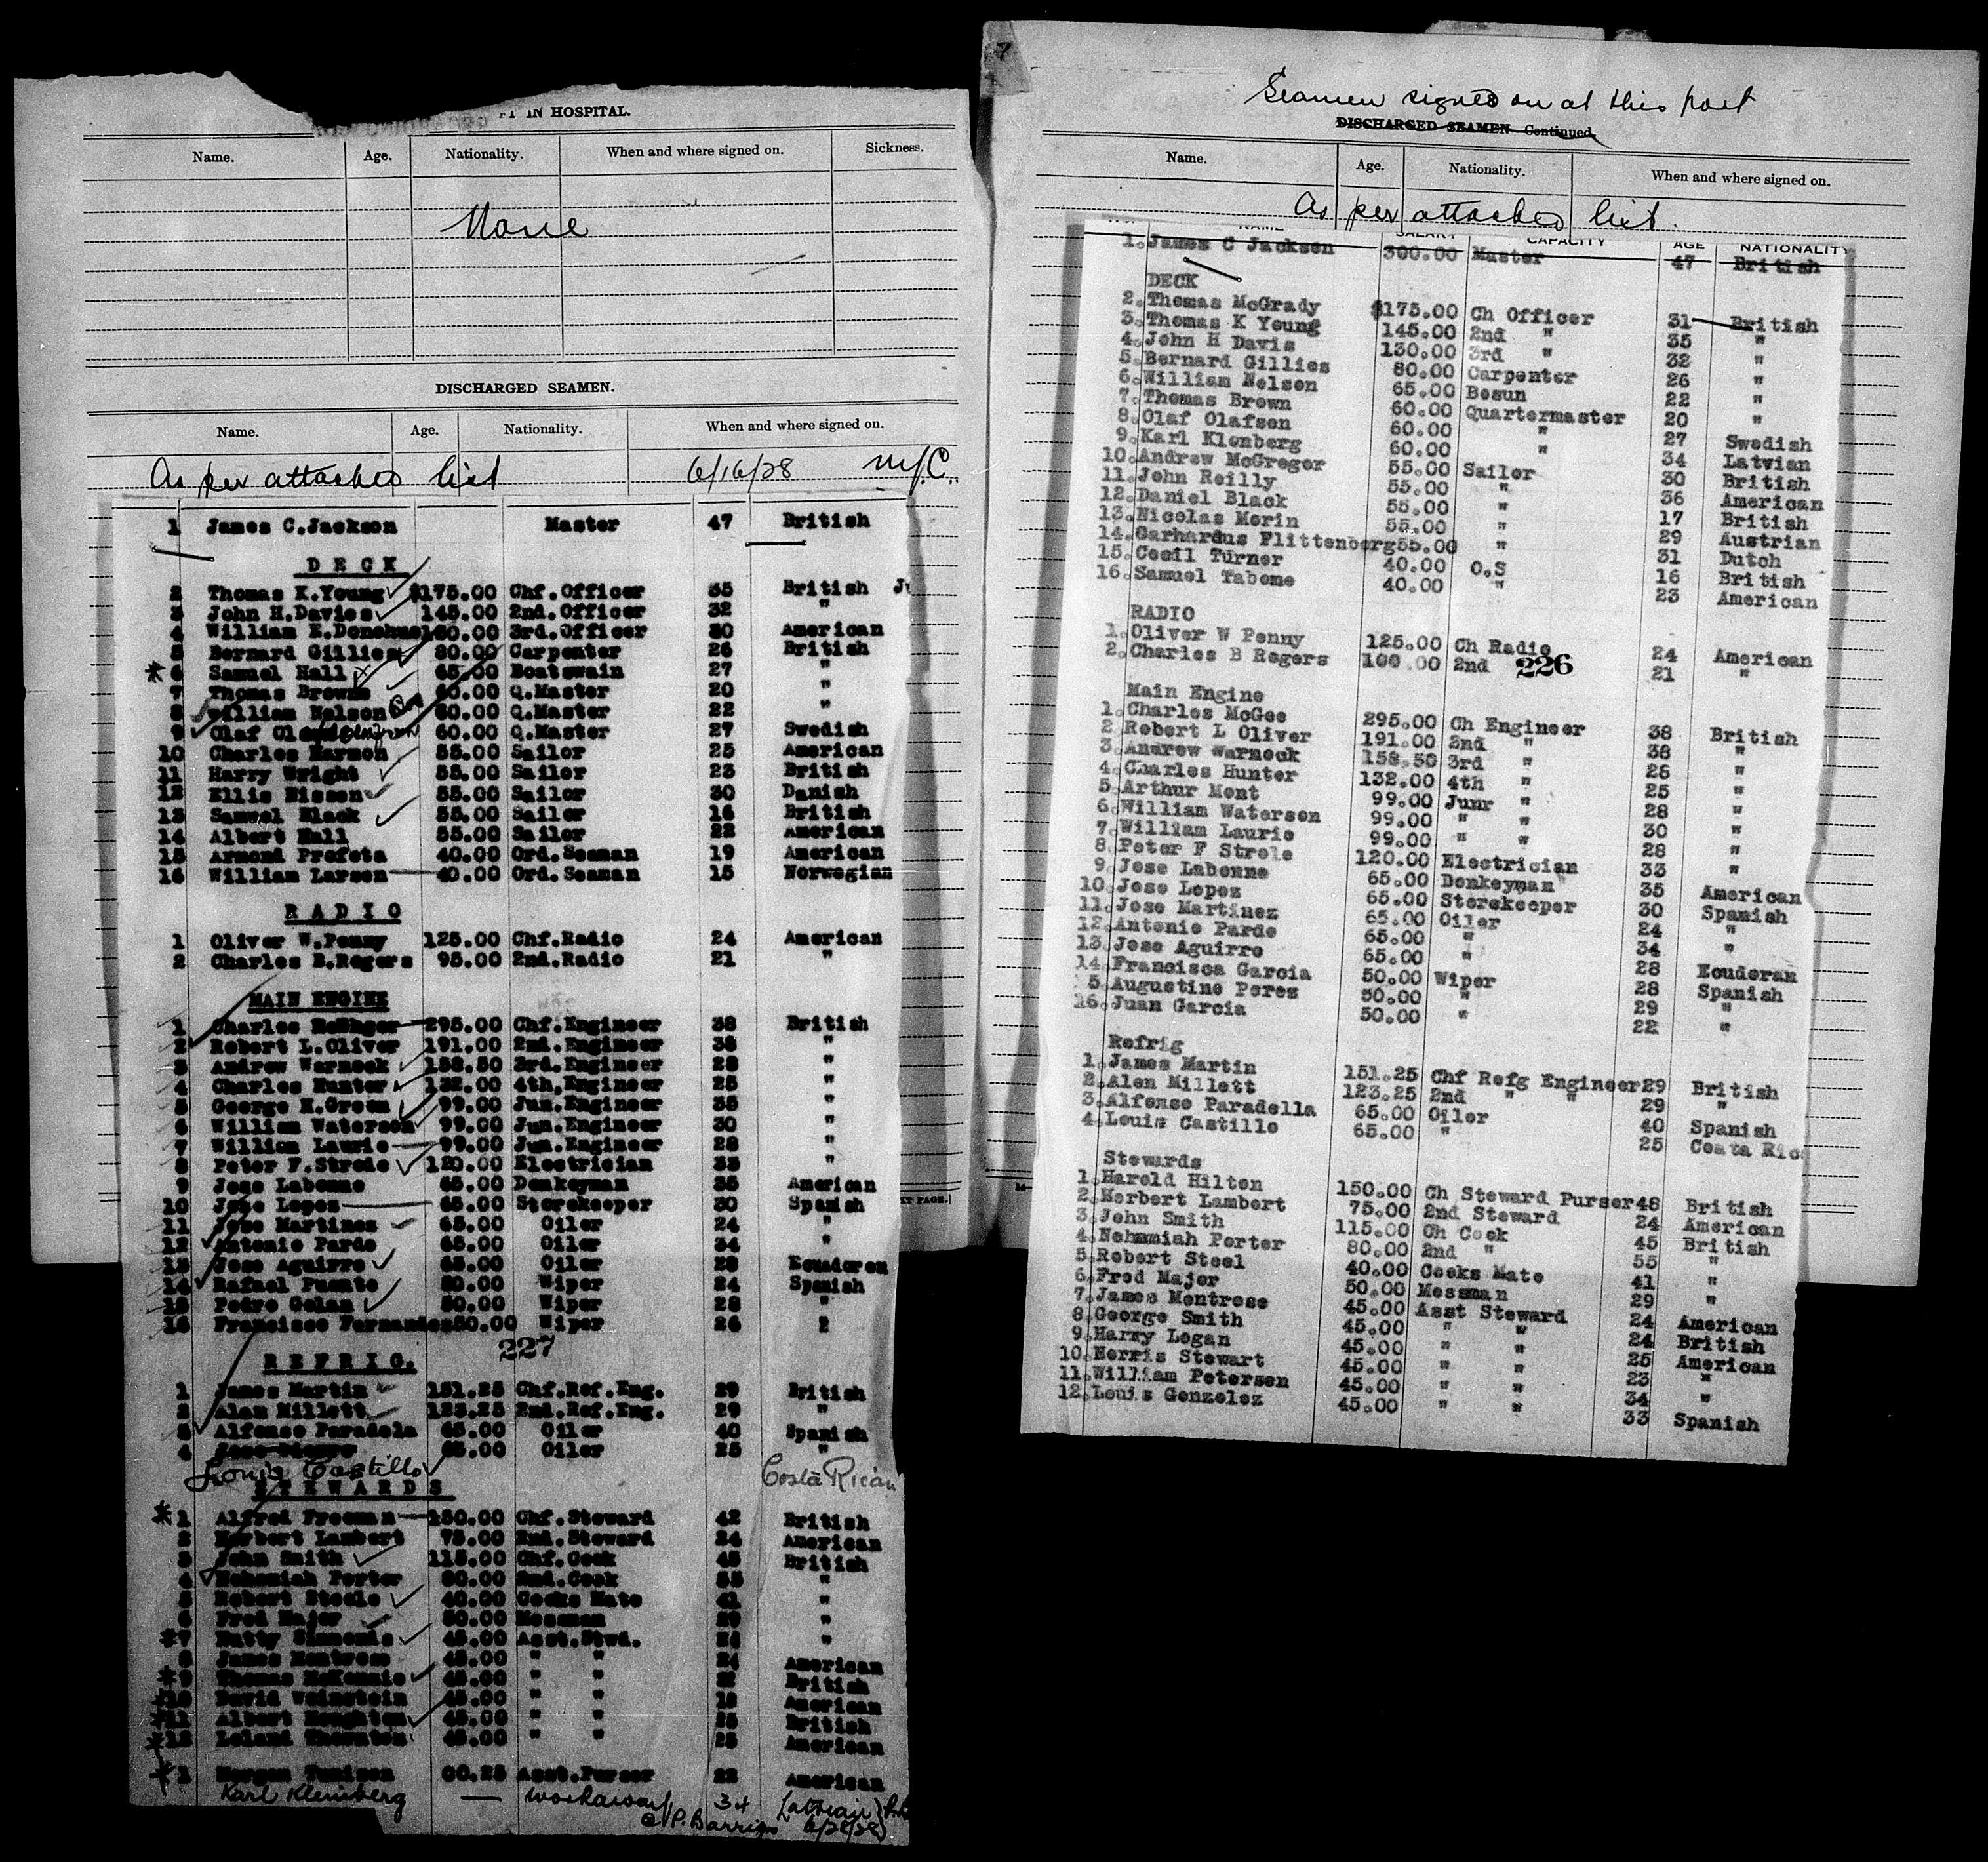 IN HOSPITAL.
Name. Age. Nationality. When and where signed on. Sickness.
None
DISCHARGED SEAMEN.
Name. Age. Nationality. When and where signed on.
As per attached list 6/16/28 NYC.
1 James C.Jackson Master 47 British
DECK
2 Thomas K.Young $175.00 Chf.Officer 35 British
3 John H.Davies 145.00 2nd.Officer 32 "
4 William E.Donohue 130.00 3rd.Officer 30 American
5 Bernard Gillies 80.00 Carpenter 26 British
* 6 Samuel Hall 65.00 Boatswain 27 "
7 Thomas Browne 60.00 Q.Master 20 "
8 William Nelson 60.00 Q.Master 22 "
9 Olaf 60.00 Q.Master 27 Swedish
10 Charles Harmon 55.00 Sailor 25 American
11 Harry Wright 55.00 Sailor 23 British
12 Ellis Nissen 55.00 Sailor 30 Danish
13 Samuel Black 55.00 Sailor 16 British
14 Albert Hall 55.00 Sailor 22 American
15 Armond Profeta 40.00 Ord.Seaman 19 American
16 William Larsen 40.00 Ord.Seaman 15 Norwegian
RADIO
1 Oliver W.Penny 125.00 Chf.Radio 24 American
2 Charles B.Rogers 95.00 2nd.Radio 21 "
MAIN ENGINE
1 Charles 295.00 Chf.Engineer 38 British
2 Robert L.Oliver 191.00 2nd.Engineer 38 "
3 Andrew Warnock 158.50 3rd.Engineer 28 "
4 Charles Hunter 132.00 4th,Engineer 25 "
5 George H.Green 99.00 Jun.Engineer 35 "
6 William Waterson 99.00 Jun.Engineer 30 "
7 William Laurie 99.00 Jun.Engineer 28 "
8 Peter F.Strole 120.00 Electrician 33 "
9 Jose Labonne 65.00 Donkeyman 35 American
10 Jose Lopes 65.00 Storekeeper 30 Spanish
11 Jose Martines 65.00 Oiler 24 "
12 Antonio Pardo 65.00 Oiler 34 "
13 Jose Aguirre 65.00 Oiler 28 Ecuadoren
14 Rafael Puente 50.00 Wiper 24 Spanish
15 Pedro Golan 50.00 Wiper 28 "
16 Francisco Fernandes 50.00 Wiper 26 2
227
REFRIG.
1 James Martin 151.25 Chf.Ref.Eng. 29 British
2 Alan Millett 123.25 2nd.Ref.Eng. 29 "
3 Alfonso Paradela 65.00 Oiler 40 Spanish
4 65.00 Oiler 25 "
Louis Castillo Costa Rican
STEWARDS
* 1 Alfred Freeman 150.00 Chf.Steward 42 British
2 Herbert Lambert 75.00 2nd.Steward 24 American
3 John Smith 115.00 Chf.Cook 45 British
4 Nehemiah Porter 80.00 2nd.Cook 55 "
5 Robert Steele 40.00 Cooks Mate 41 "
6 Fred Major 50.00 Messman 29 "
* 7 45.00 Asst.Stwd. "
8 James Montrose 45.00 " " 24 American
* 9 Thomas McKennie 45.00 " " British
* 10 David Weinstein 45.00 " " American
* 11 Albert Houghton 45.00 " " British
* 12 Leland Thornton 45.00 " " American
* 1 Morgan 00.25 Asst.Purser 22 American
Karl Kleinberg — workaway 34 Latvian
P. Barrios 6/28/28
Seamen signed on at this port
DISCHARGED SEAMEN—Continued.
Name. Age. Nationality. When and where signed on.
As per attached list.
NAME SALARY CAPACITY AGE NATIONALITY
1. James C Jackson 300.00 Master 47 British
DECK
2. Thomas McGrady $175.00 Ch Officer 31 British
3. Thomas K Young 145.00 2nd " 35 "
4. John H Davis 130.00 3rd " 32 "
5. Bernard Gillies 80.00 Carpenter 26 "
6. William Nelson 65.00 Bosun 22 "
7. Thomas Brown 60.00 Quartermaster 20 "
8. Olaf Olafsen 60.00 " 27 Swedish
9. Karl Klenberg 60.00 " 34 Latvian
10. Andrew McGregor 55.00 Sailor 30 British
11. John Reilly 55.00 " 36 American
12. Daniel Black 55.00 " 17 British
13. Nicolas Morin 55.00 " 29 Austrian
14. Garhardus Flittenberg 55.00 " 31 Dutch
15. Cecil Turner 40.00 O.S 16 British
16. Samuel Tabome 40.00 " 23 American
RADIO
1. Oliver W Penny 125.00 Ch Radio 24 American
2. Charles B Rogers 100.00 2nd 226 21 "
Main Engine
1. Charles McGee 295.00 Ch Engineer 38 British
2. Robert L Oliver 191.00 2nd " 38 "
3. Andrew Warnock 158.50 3rd " 28 "
4. Charles Hunter 132.00 4th " 25 "
5. Arthur Mont 99.00 Junr " 28 "
6. William Waterson 99.00 " " 30 "
7. William Laurie 99.00 " " 28 "
8. Peter F Strole 120.00 Electrician 33 "
9. Jose Labonne 65.00 Donkeyman 35 American
10. Jose Lopez 65.00 Storekeeper 30 Spanish
11. Jose Martinez 65.00 Oiler 24 "
12. Antonio Pardo 65.00 " 34 "
13. Jose Aguirre 65.00 " 28 Ecuderan
14. Francisca Garcia 50.00 Wiper 28 Spanish
15. Augustine Perez 50.00 " 29 "
16. Juan Garcia 50.00 " 22 "
Refrig
1. James Martin 151.25 Chf Refg Engineer 29 British
2. Alen Millett 123.25 2nd " " 29 "
3. Alfonso Paradella 65.00 Oiler 40 Spanish
4. Louis Castillo 65.00 " 25 Costa Rica
Stewards
1. Harold Hilton 150.00 Ch Steward Purser 48 British
2. Herbert Lambert 75.00 2nd Steward 24 American
3. John Smith 115.00 Ch Cook 45 British
4. Nehmniah Porter 80.00 2nd " 55 "
5. Robert Steel 40.00 Cooks Mate 41 "
6. Fred Major 50.00 Messman 29 "
7. James Montrose 45.00 Asst Steward 24 American
8. George Smith 45.00 " " 24 British
9. Harry Logan 45.00 " " 25 American
10. Norris Stewart 45.00 " " 23 "
11. William Petersen 45.00 " " 34 "
12. Louis Genzelez 45.00 " " 33 Spanish